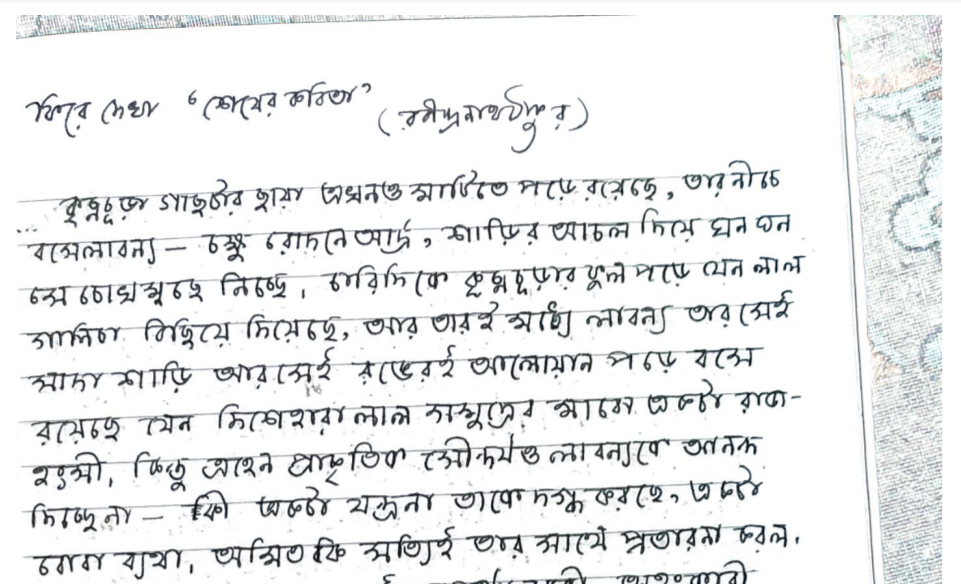 ফিরে দেখা "শেষের কবিতা"
(রবীন্দ্রনাথ ঠাকুর)
কৃষ্ণচূড়া গাছটার ছায়া এখনও মাটিতে পড়ে রয়েছে, তার নীচে
... বসে লাবন্য – চক্ষু রোদনে আর্দ্র, শাড়ির আচল দিয়ে ঘন ঘন
সে চোখ মুছে নিচ্ছে, চারিদিকে কৃষ্ণচূড়ার ফুল পড়ে যেন লাল
গালিচা বিছিয়ে দিয়েছে, আর তারই মধ্যে লাবন্য তার সেই
সাদা শাড়ি আর সেই রঙেরই আলোয়ান পড়ে বসে
রয়েছে যেন দিশেহারা লাল সমুদ্রের মাঝে একটা রাজ-
হংসী, কিন্তু এহেন প্রাকৃতিক সৌন্দর্যও লাবন্যকে আনন্দ
দিচ্ছে না – কী একটা যন্ত্রনা তাকে দগ্ধ করছে, একটা
চাপা ব্যথা, অমিত কি সত্যিই তার সাথে প্রতারনা করল.